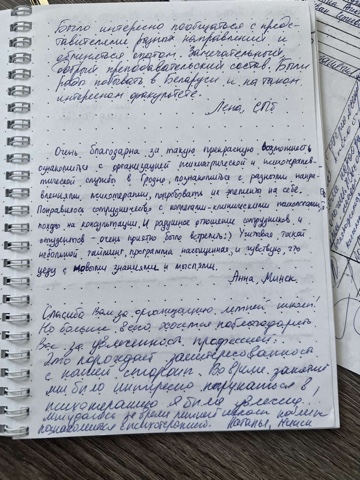 Было интересно пообщаться с предс-
тавителями разных направлений и
обменяться опытом. Замечательный,
добрый преподавательский состав. Были
рада побывать в Беларуси и на таком
интересном факультете.
Лена, СПб
Очень благодарна за такую прекрасную возможность
ознакомиться с организацией психиатрической и психотерапев-
тической службы в Гродно, познакомиться с разными направ-
лениями психотерапии, попробовать их элементы на себе.
Понравилось сотрудничество с коллегами-клиническими психологами,
поход на консультации. И радушное отношение сотрудников и
студентов - очень приятно было встретить:) Учитывая такой
небольшой тайминг, программа насыщенная, и чувствую, что
уеду с новыми знаниями и мыслями.
Анна, Минск
Спасибо Вам за организацию летней школы!
Но больше всего хочется поблагодарить
Вас за увлеченность профессией.
Это порождает заинтересованность
с нашей стороны. Во время занятий
мне было интересно погружаться в
психотерапию, я была увлечена!
за время летней школы
познакомится с психотерапией. Минск